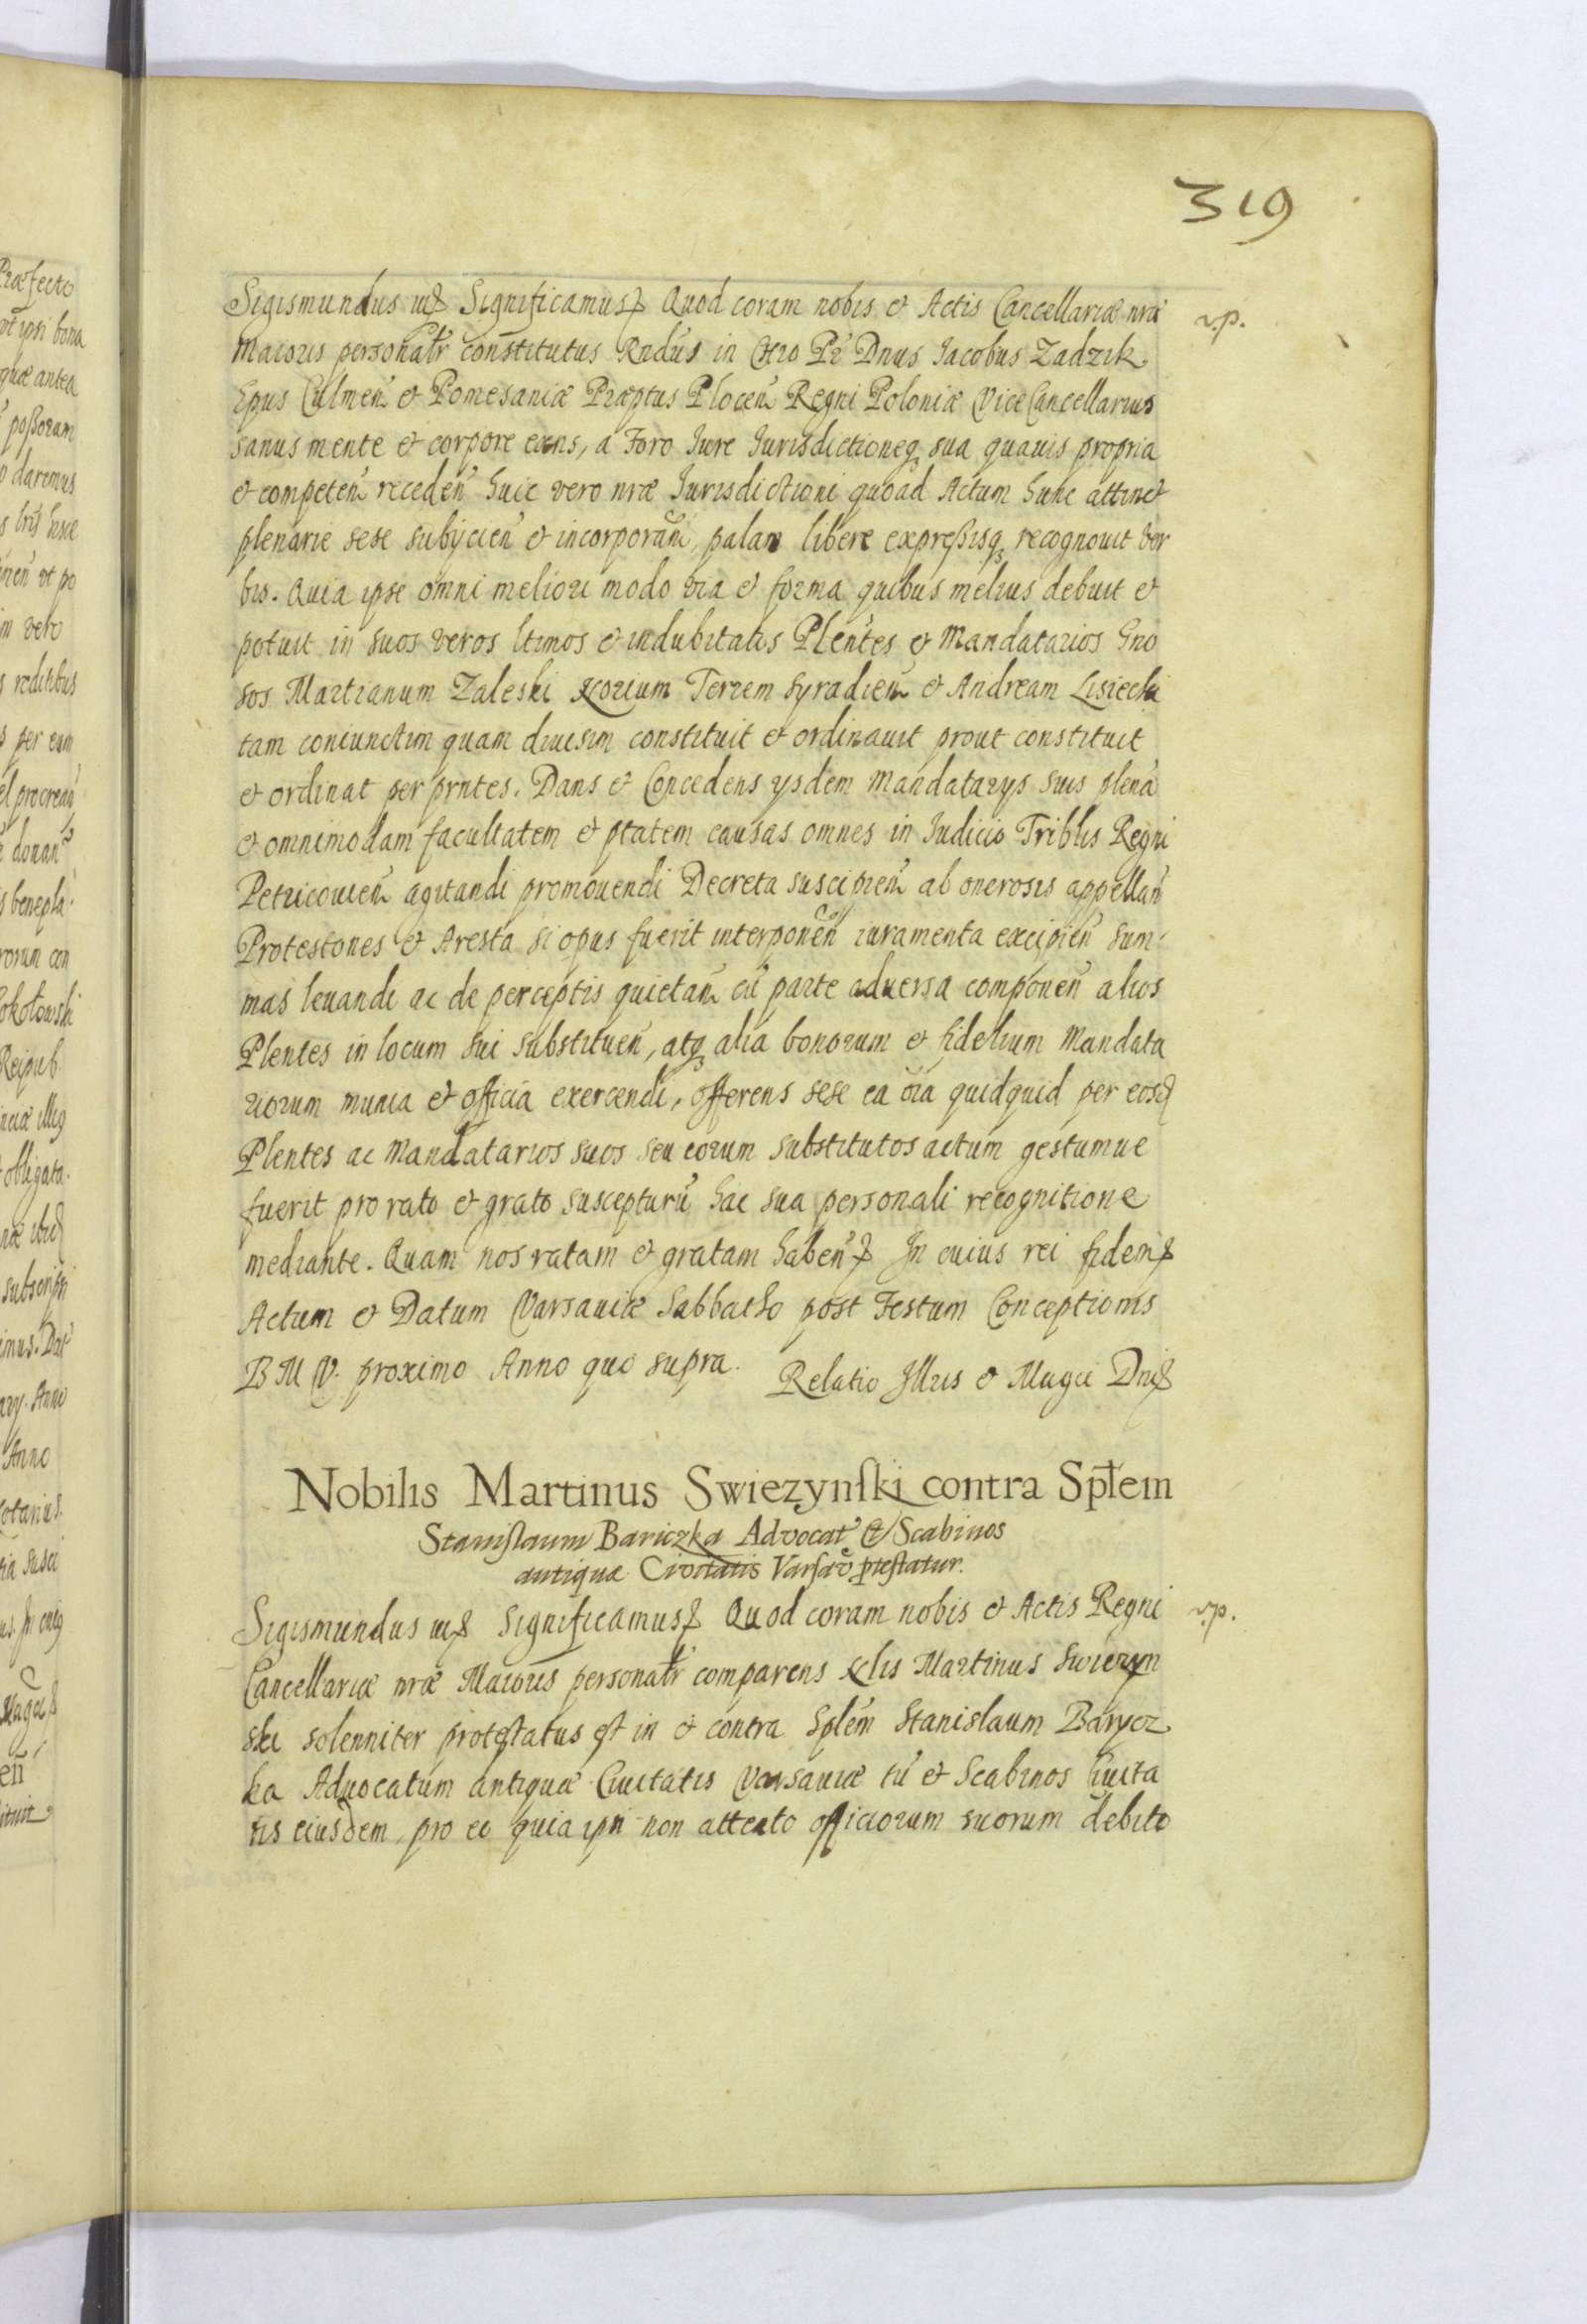 319
Sigismundus III Significamus Quod coram nobis et Actis Cancellariæ nræ
r.p.
Maioris personalr constitutus Rndus in Chro Pr Dnus Jacobus Zadzik
Epus Culmeñ et Pomesaniæ Præptus Ploceñ Regni Poloniæ ViceCancellarius
sanus mente et corpore exns, a Foro Jure Jurisdictioneq sua quauis propria
et competeñ recedeñ huic vero nræ Jurisdictioni quoad Actum hunc attinet
plenarie sese subijcieñ et incorporañ, palam libere expreßisq recognouit ver
bis. Quia ipse omni meliori modo via et forma quibus melius debuit et
potuit in suos veros ltimos et indubitatos Plentes et Mandatarios Gno
sos Martianum Zaleski Terrem Syradieñ et Andream Lisiecki
tam coniunctim quam diuisim constituit et ordinauit prout constituit
et ordinat per prntes. Dans et Concedens ysdem Mandatarys suis plenã
et omnimodam facultatem et ptatem causas omnes in Judicio Triblis Regni
Petricouieñ agitandi promouendi Decreta suscipieñ ab onerosis appellañ
Protestones et Aresta si opus fuerit interponeñ iuramenta excipieñ sum-
mas leuandi ac de perceptis quietañ cũ parte aduersa componeñ alios
Plentes in locum sui substitueñ, atq alia bonorum et fidelium Mandata
riorum munia et officia exercendi, offerens sese ea oĩa quidquid per eosd
Plentes ac Mandatarios suos seu eorum substitutos actum gestumue
fuerit pro rato et grato suscepturũ hac sua personali recognitione
mediante. Quam nos ratam et gratam habeñ In cuius rei fidem
Actum et Datum Varsauiæ Sabbatho post Festum Conceptionis
B M V. proximo Anno quo supra. Relatio Illris et Magci Dni
Nobilis Martinus Swiezynski contra Spłem
Stanislaum Bariczka Advocat̃ et Scabinos
antiquæ Civitatis Varsav̄ ptestatur.
Sigismundus III Significamus Quod coram nobis et Actis Regni
r.p.
Cancellariæ nræ Maioris personalr comparens Nlis Martinus Swiezyn
ski solenniter protestatus est in et contra Splem Stanislaum Barycz
ka Aduocatum antiquæ Ciuitatis Varsauiæ tũ et Scabinos Ciuita
tis eiusdem, pro eo quia ipsi non attento officiorum suorum debito